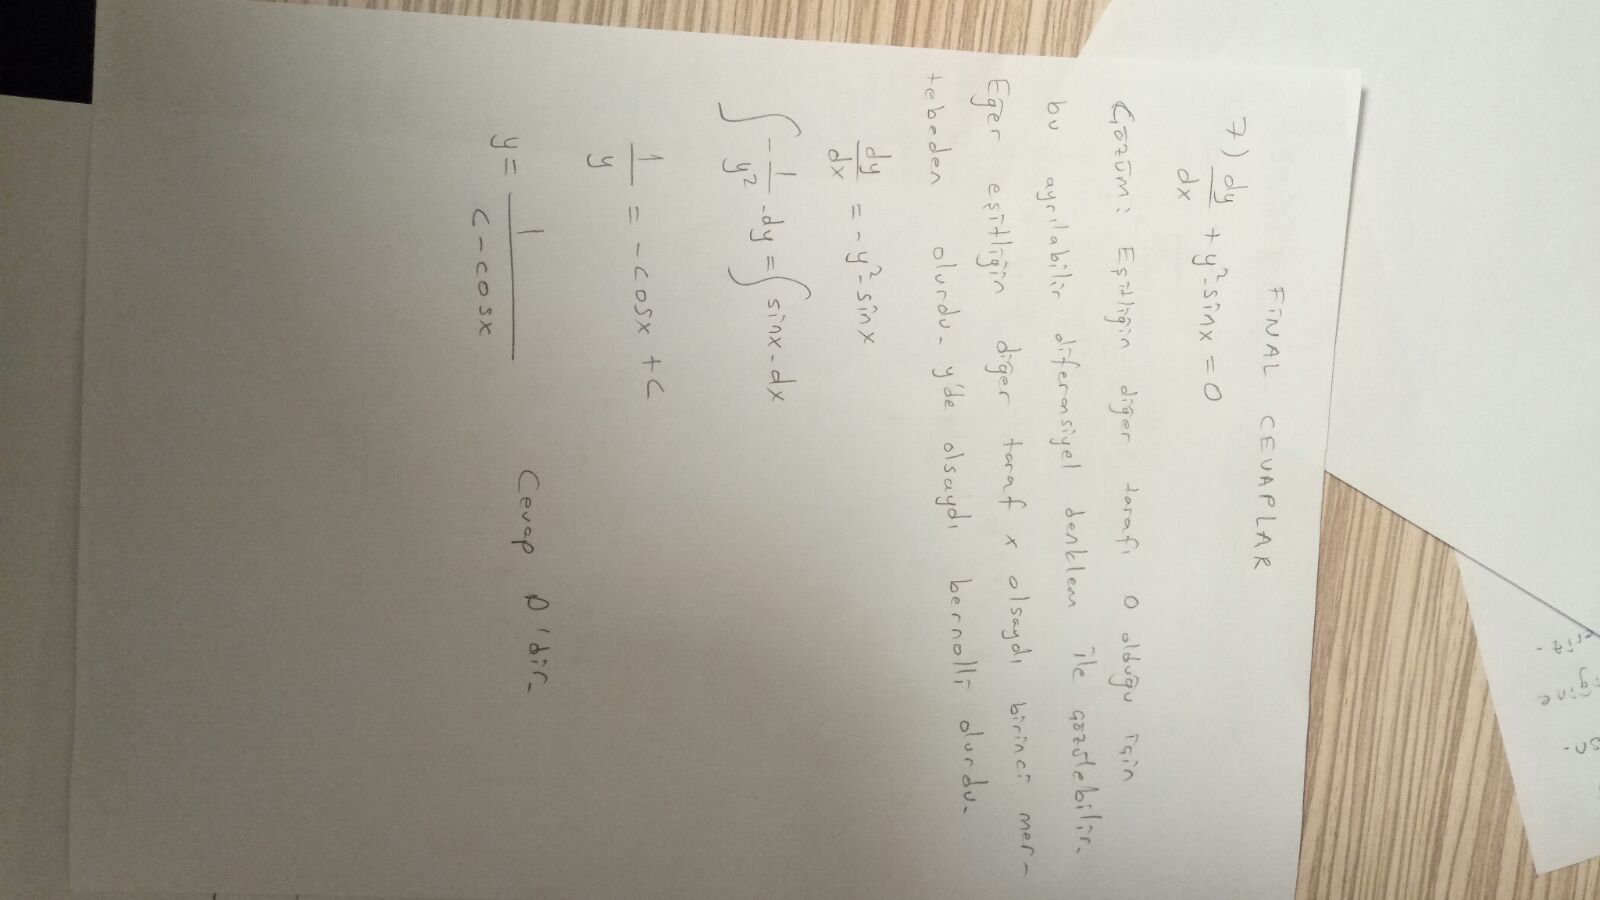 son.
iğine
eriz.
FİNAL CEVAPLAR
7) dy/dx + y².sinx = 0
Çözüm: Eşitliğin diğer tarafı 0 olduğu için
bu ayrılabilir diferensiyel denklem ile çözülebilir.
Eğer eşitliğin diğer taraf x olsaydı birinci mer-
tebeden olurdu. y'de olsaydı bernolli olurdu.
dy/dx = -y².sinx
∫ -1/y² .dy = ∫ sinx.dx
1/y = -cosx + c
y = 1/(c - cosx) Cevap D'dir.